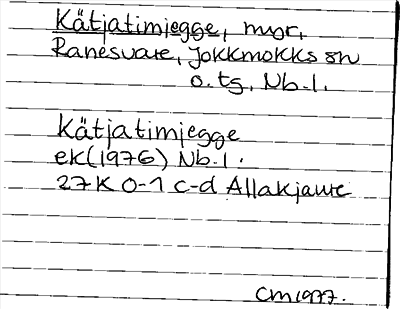 Kätjatimjegge, myr,
Ranesvare, Jokkmokks sn
o. tg, Nb.l.
Kätjatimjegge
ek(1976) Nb.l.
27K 0-1 c-d Allakjaure
CM1977.